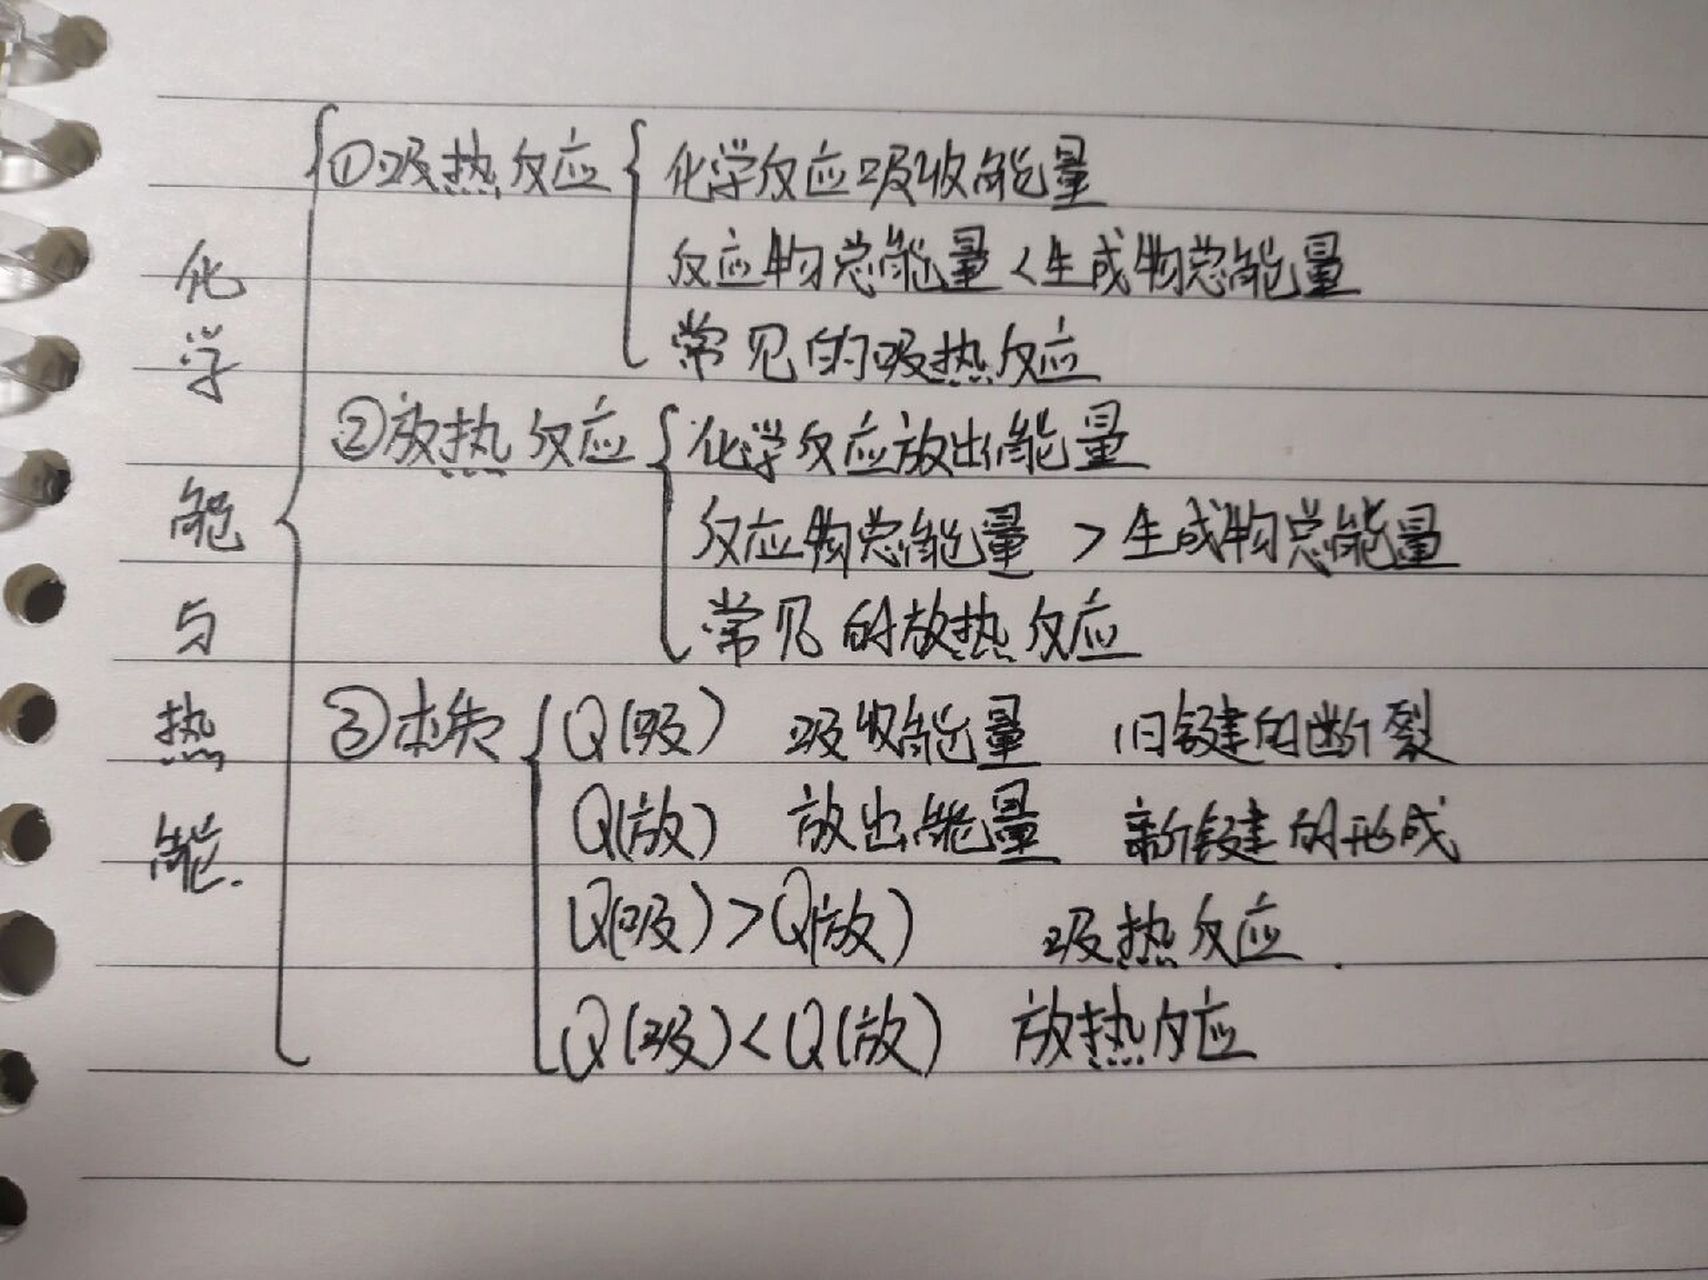 化学能与热能.
①吸热反应
化学反应吸收能量
反应物总能量<生成物总能量
常见的吸热反应
②放热反应
化学反应放出能量
反应物总能量>生成物总能量
常见的放热反应
③
Q(吸) 吸收能量 旧键的断裂
Q(放) 放出能量 新键的形成
Q(吸)>Q(放) 吸热反应.
Q(吸)<Q(放) 放热反应